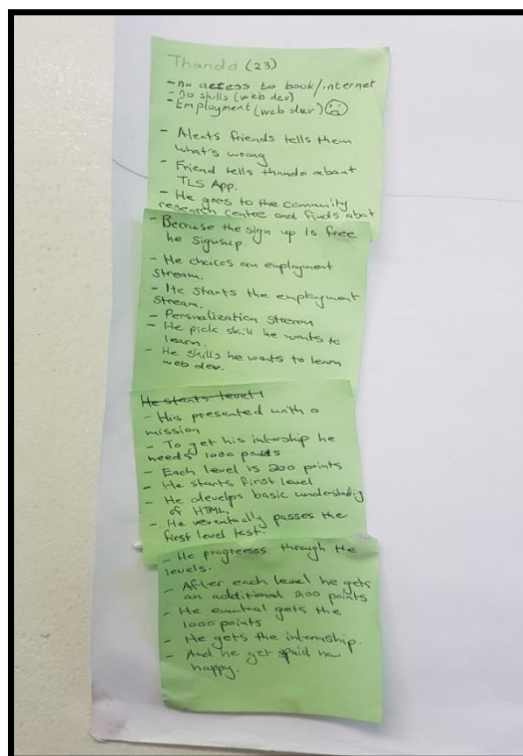 Thando (23)
- No access to book/internet
- No skills (web dev)
- Employment (web dev)
- Alerts friends tells them
what's wrong
- Friend tells thando about
TLS App.
- He goes to the community
research centre and finds about
- Because the sign up is free
he signsup.
- He choices an employment
stream.
- He starts the employment
stream.
- Personalization stream
- He pick skill he wants to
learn.
- He skills he wants to learn
web dev.
He starts level 1
- His presented with a
mission
- To get his intership he
needs 1000 points
- Each level is 200 points
- He starts first level
- He develps basic understadig
of HTML.
- He veventually passes the
first level test.
- He progresss through the
levels.
- After each level he gets
an additional 200 points
- He evential gets the
1000 points
- He gets the internship.
- And he get paid
happy.